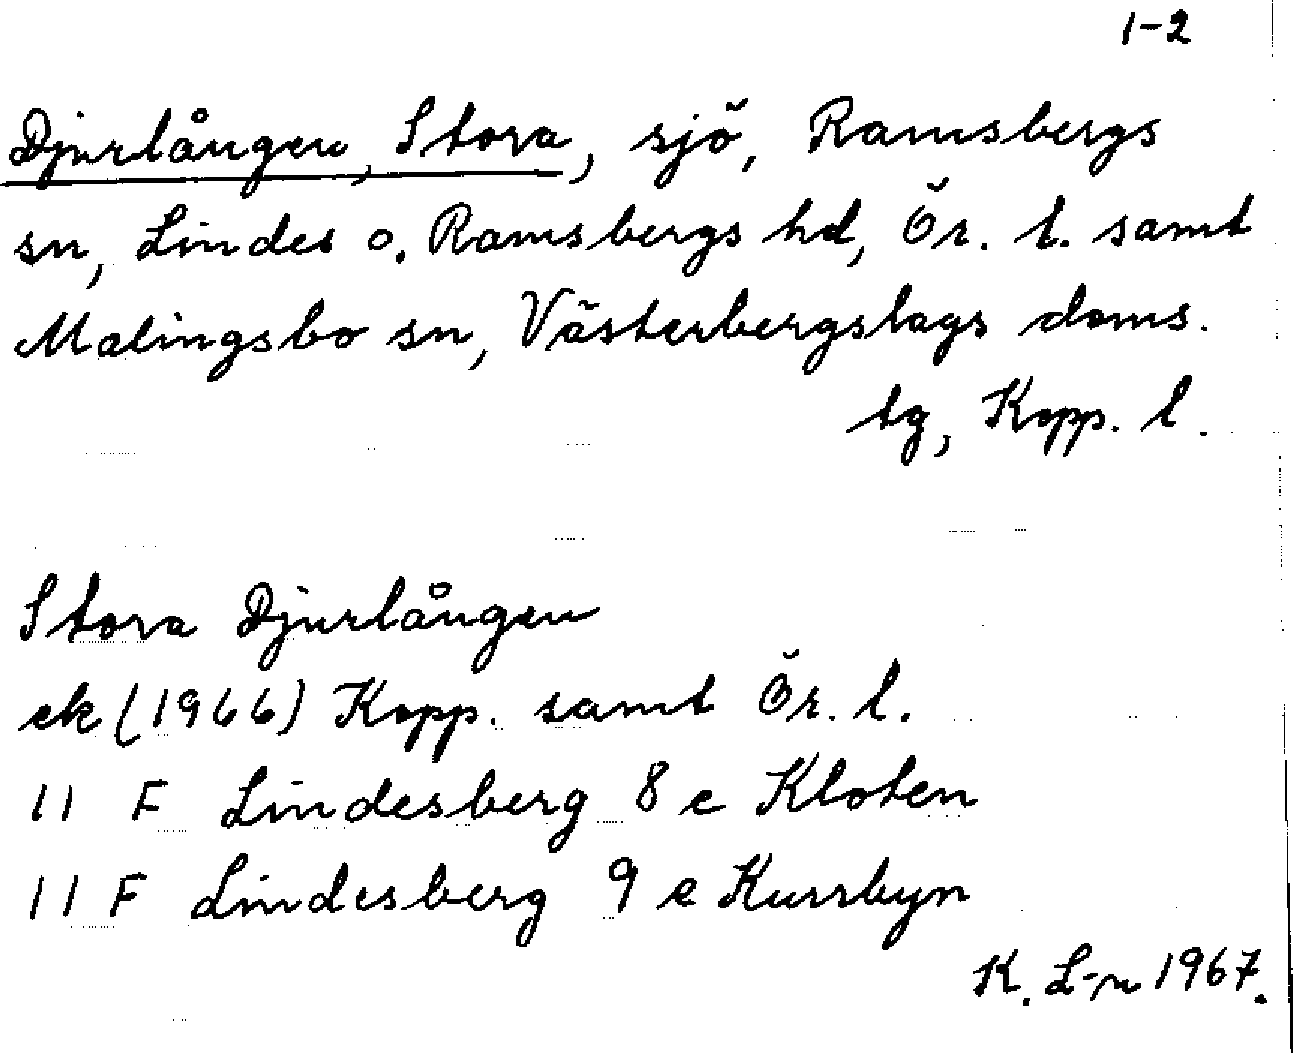 1-2
Djurlången, Stora, sjö, Ramsbergs
sn, Lindes o. Ramsbergs hd, Ör. l. samt
Malingsbo sn, Västerbergslags doms.
tg, Kopp. l.
Stora Djurlången
ek (1966) Kopp. samt Ör. l.
11 F Lindesberg 8 e Kloten
11 F Lindesberg 9 e Kursbyn
K. L-n 1967.